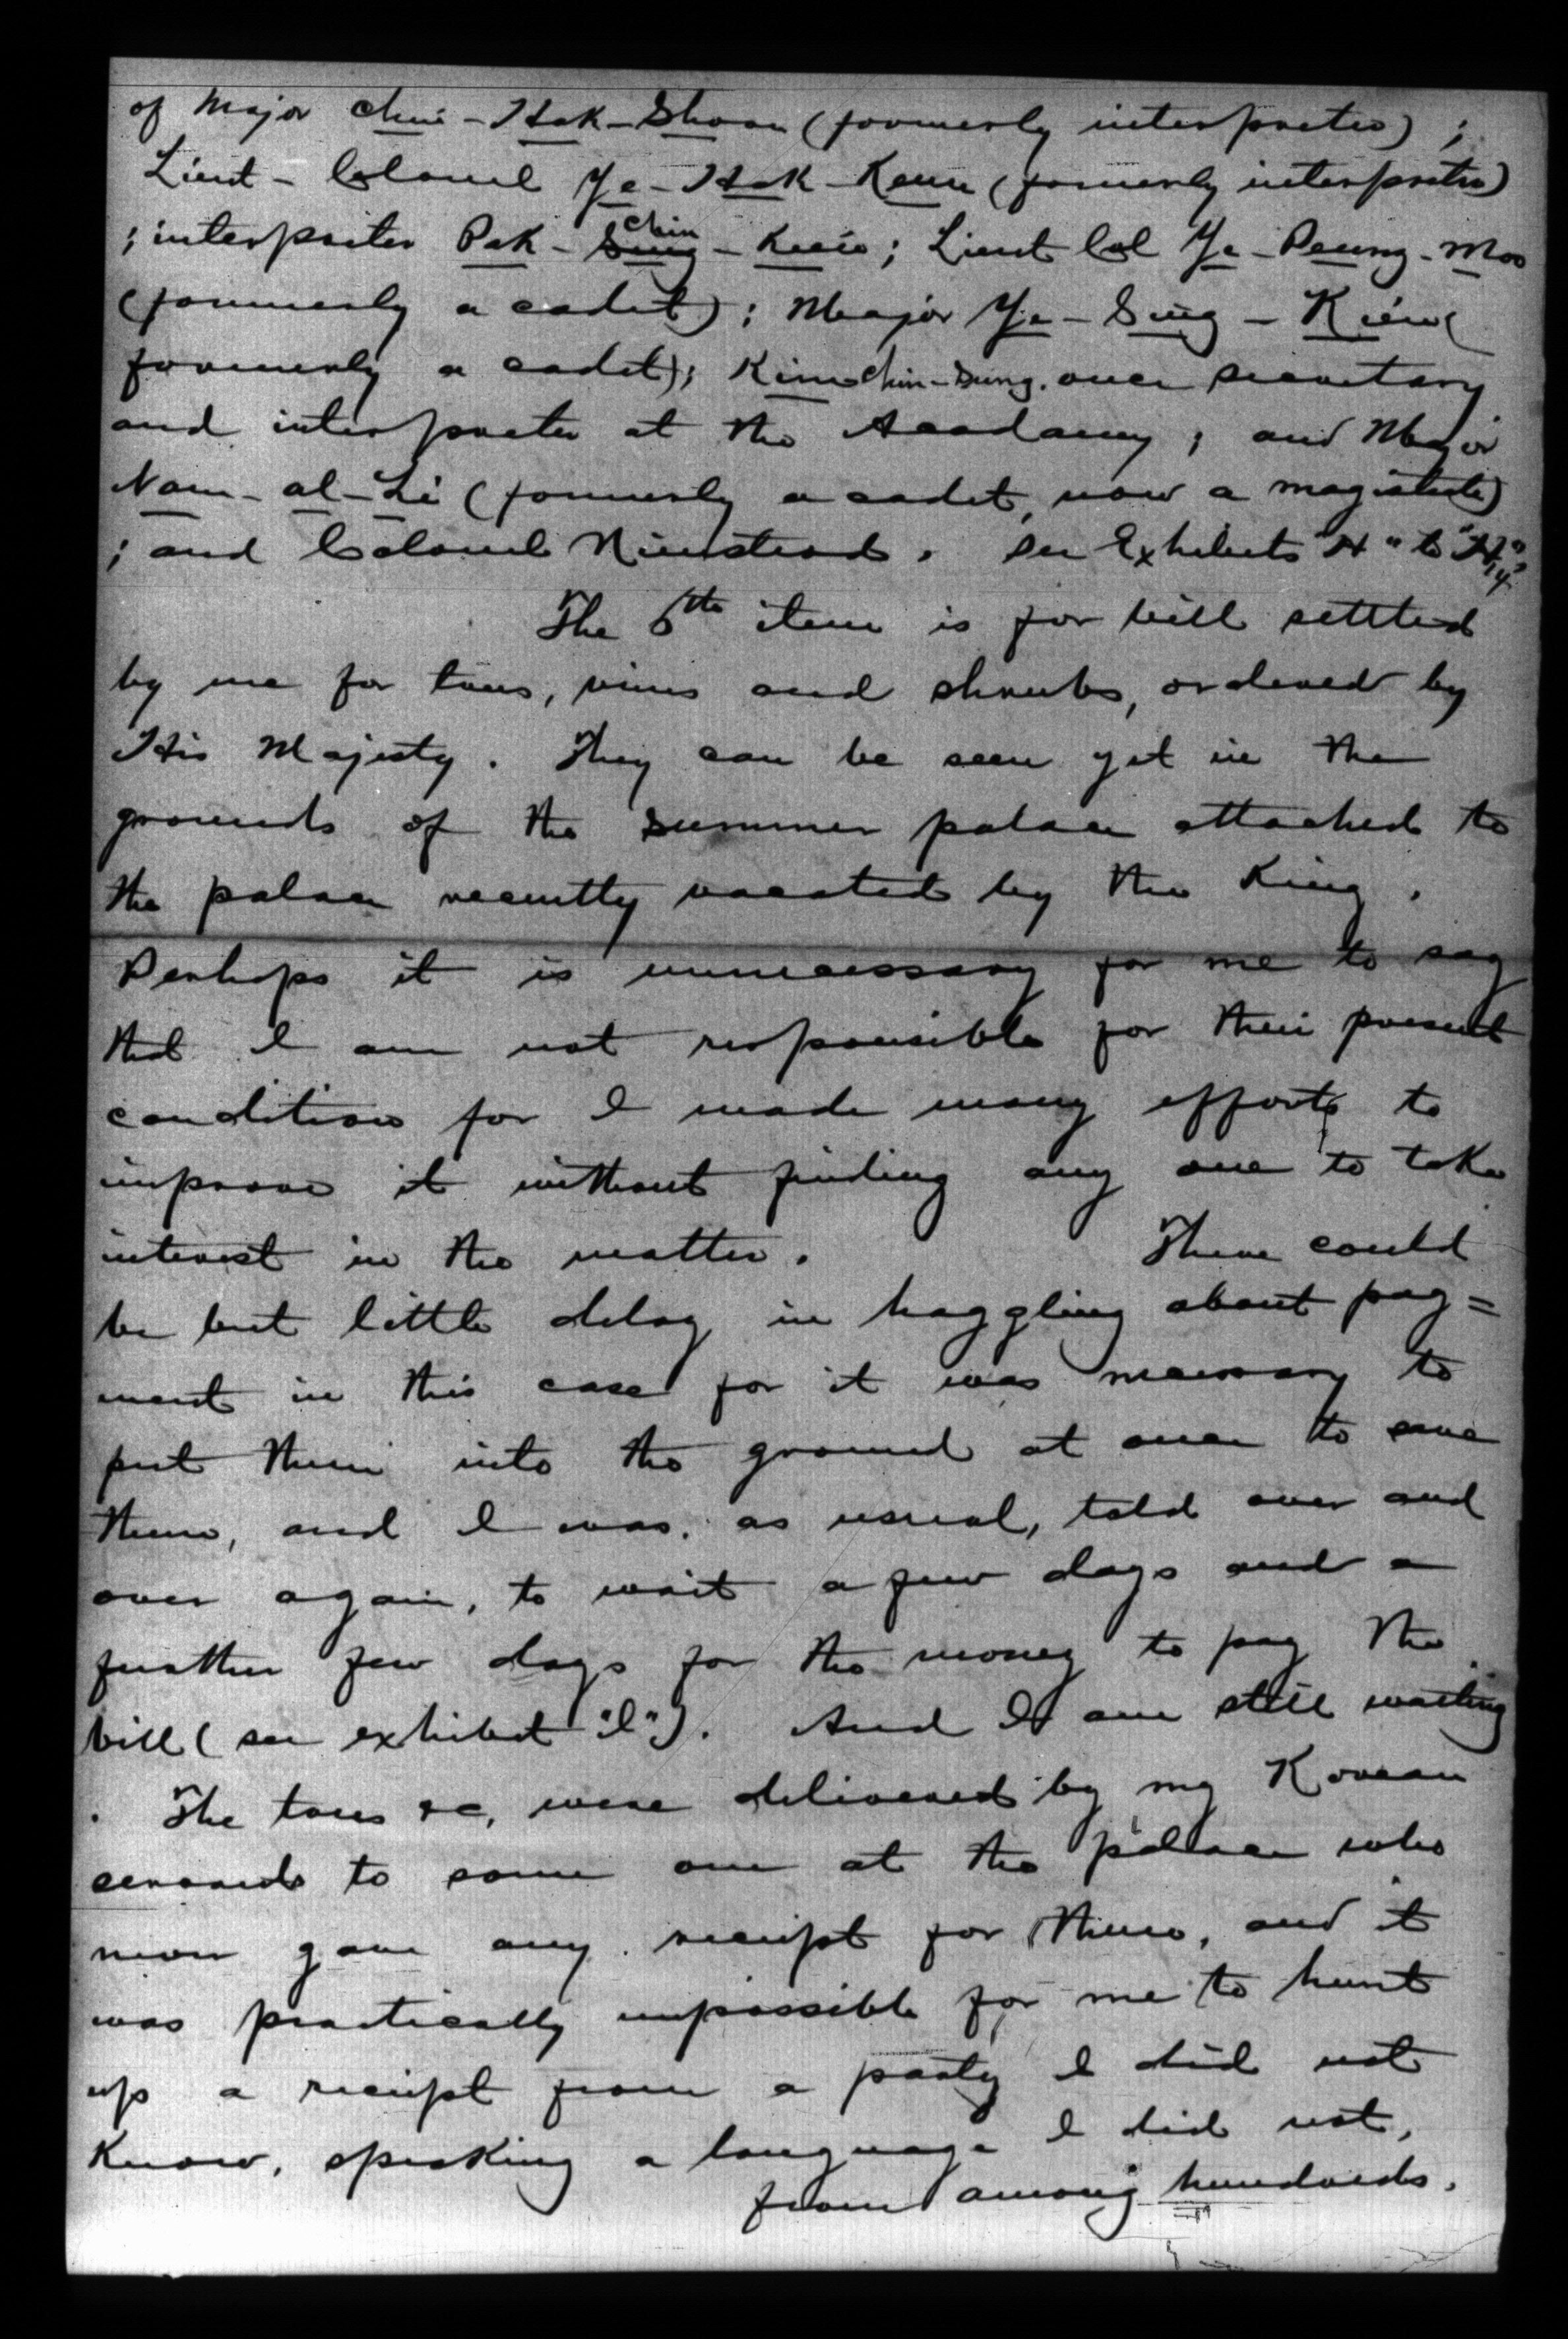 of Major Chui-Hak-Shoon (formerly interpreter) ;
Lieut-Colonel Ye-Hak-Keun (formerly interpreter)
; interpreter Pak-Chin-; Lieut Col Ye-Peung-Moo
(formerly a cadet); Major Ye-Sung-(
formerly a cadet); Kim Chin-Sung. once secretary
and interpreter at the Acadamy ; and Major
Nam-al-Li (formerly a cadet, now a magistrate)
; and Colonel Nienstead. See Exhibits "H" to "H14"
The 6th item is for bill settled
by me for trees, vines and shrubs, ordered by
His Majesty. They can be seen yet in the
grounds of the summer palace attached to
the palace recently vacated by the King.
Perhaps it is unnecessary for me to say
that I am not responsible for their present
condition for I made many efforts to
improve it without finding any one to take
interest in the matter. There could
be but little delay in haggling about pay=
ment in this case for it was necessary to
put them into the ground at once to save
them, and I was, as usual, told over and
over again, to wait a few days and a
further few days for the money to pay the
bill (see exhibit "I"). And I am still waiting
. The trees &c, were delivered by my Korean
servants to some one at the palace who
never gave any receipt for them, and it
was practically impossible for me to hunt
up a receipt from a party I did not
know, speaking a language I did not,
from among hundreds.